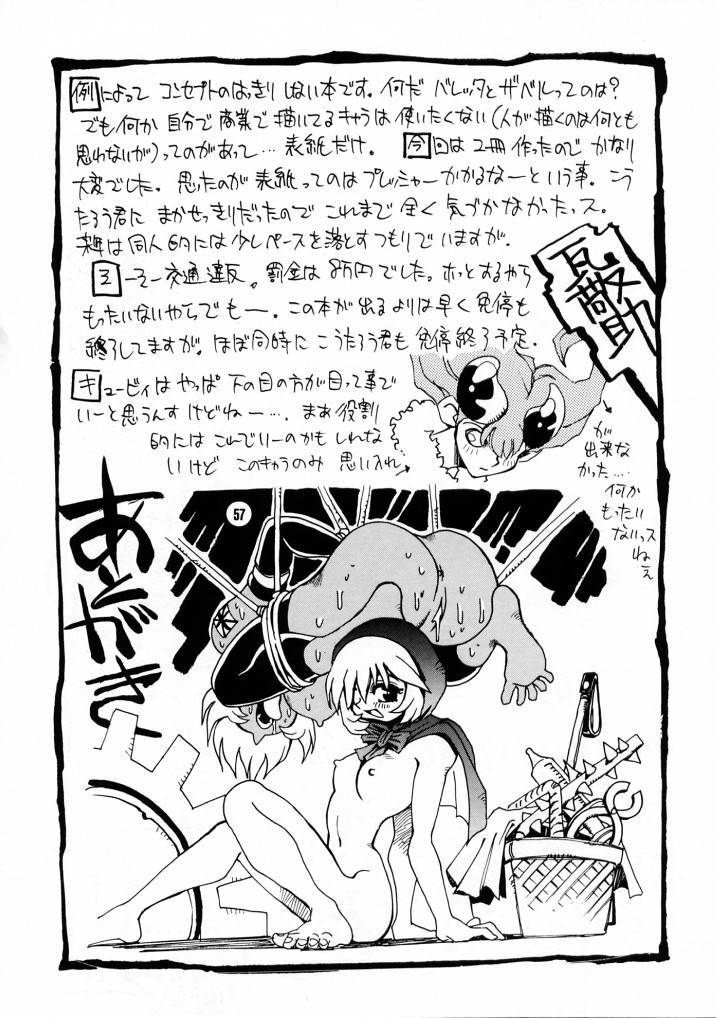 例によって コンセプトのはっきり しない本です。何だ バレッタとザベルってのは?
でも何か 自分で商業で描いてるキャラは使いたくない(人が描くのは何とも
思わないが)ってのがあって…表紙だけ。 今回は2冊作ったので かなり
大変でした。思ったのが 表紙ってのはプレッシャーかかるなーという事。こう
たろう君に まかせっきりだったので これまで全く 気づかなかったっス。
来年は同人的には少しペースを落とすつもりでいますが。
ーそー交通違反。罰金は8万円でした。ホッとするやら
もったいないやらでもー。この本が出るよりは早く免停も
終了してますが。ほぼ同時に こうたろう君も 免停終了予定.
キュービィはやっぱ 下の目の方が目って事で
いーと思うんすけどねー…. まあ役割
的には これでいーのかもしれな
いけど このキャラのみ 思い入れ
が
出来な
かった…
何か
もったい
ないっス
ねぇ
あとがき
57